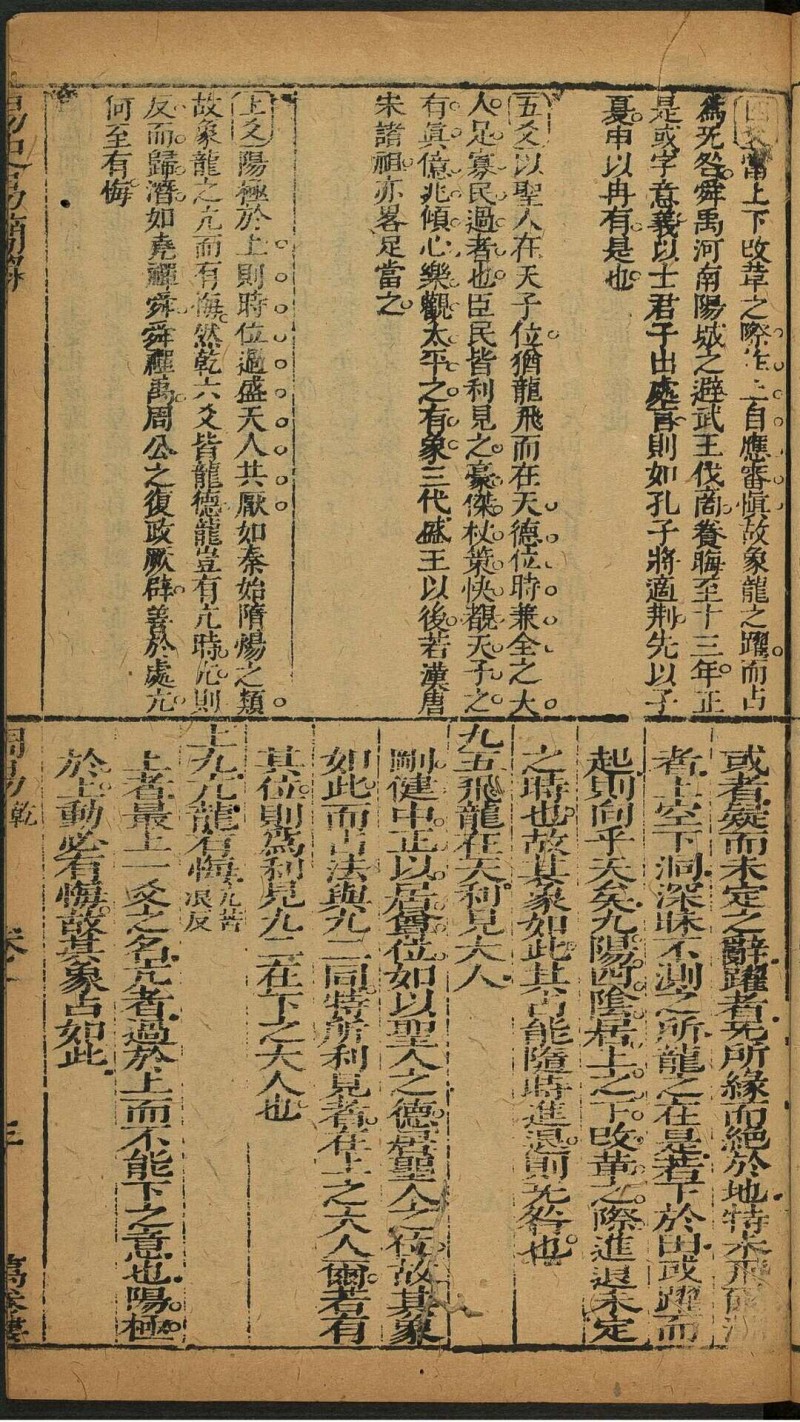 四爻當上下改革之際在上自應審慎故象龍之躍而占
為无咎舜禹河南陽城之避武王伐商養晦至十三年正
是或字意義以士君子出處言則如孔子將適荆先以子
夏申以冉有是也
五爻以聖人在天子位猶龍飛而在天德位時兼全之大
人足寡民過者也臣民皆利見之豪傑杖策快覩天子之
有眞億兆傾心樂觀太平之有象三代盛王以後若漢唐
宋諸祖亦畧足當之
上爻陽極於上則時位過盛天人共厭如秦始隋煬之類
故象龍之亢而有悔然乾六爻皆龍德龍豈有亢時亢則
反而歸潛如堯禪舜舜禪禹周公之復政厥辟善於處亢
何至有悔
或者疑而未定之辭躍者无所緣而絕於地特未飛爾淵
者上空下洞深昧不測之所龍之在是若下於田或躍而
起則向乎天矣九陽四陰居上之下改革之際進退未定
之時也故其象如此其占能隨時進退則无咎也
九五飛龍在天利見大人
剛健中正以居尊位如以聖人之德居聖人之位故其象
如此而占法與九二同特所利見者在上之大人爾若有
其位則爲利見九二在下之大人也
上九亢龍有悔亢苦浪反
上者最上一爻之名亢者過於上而不能下之意也陽極
於上動必有悔故其象占如此
周易 乾
三